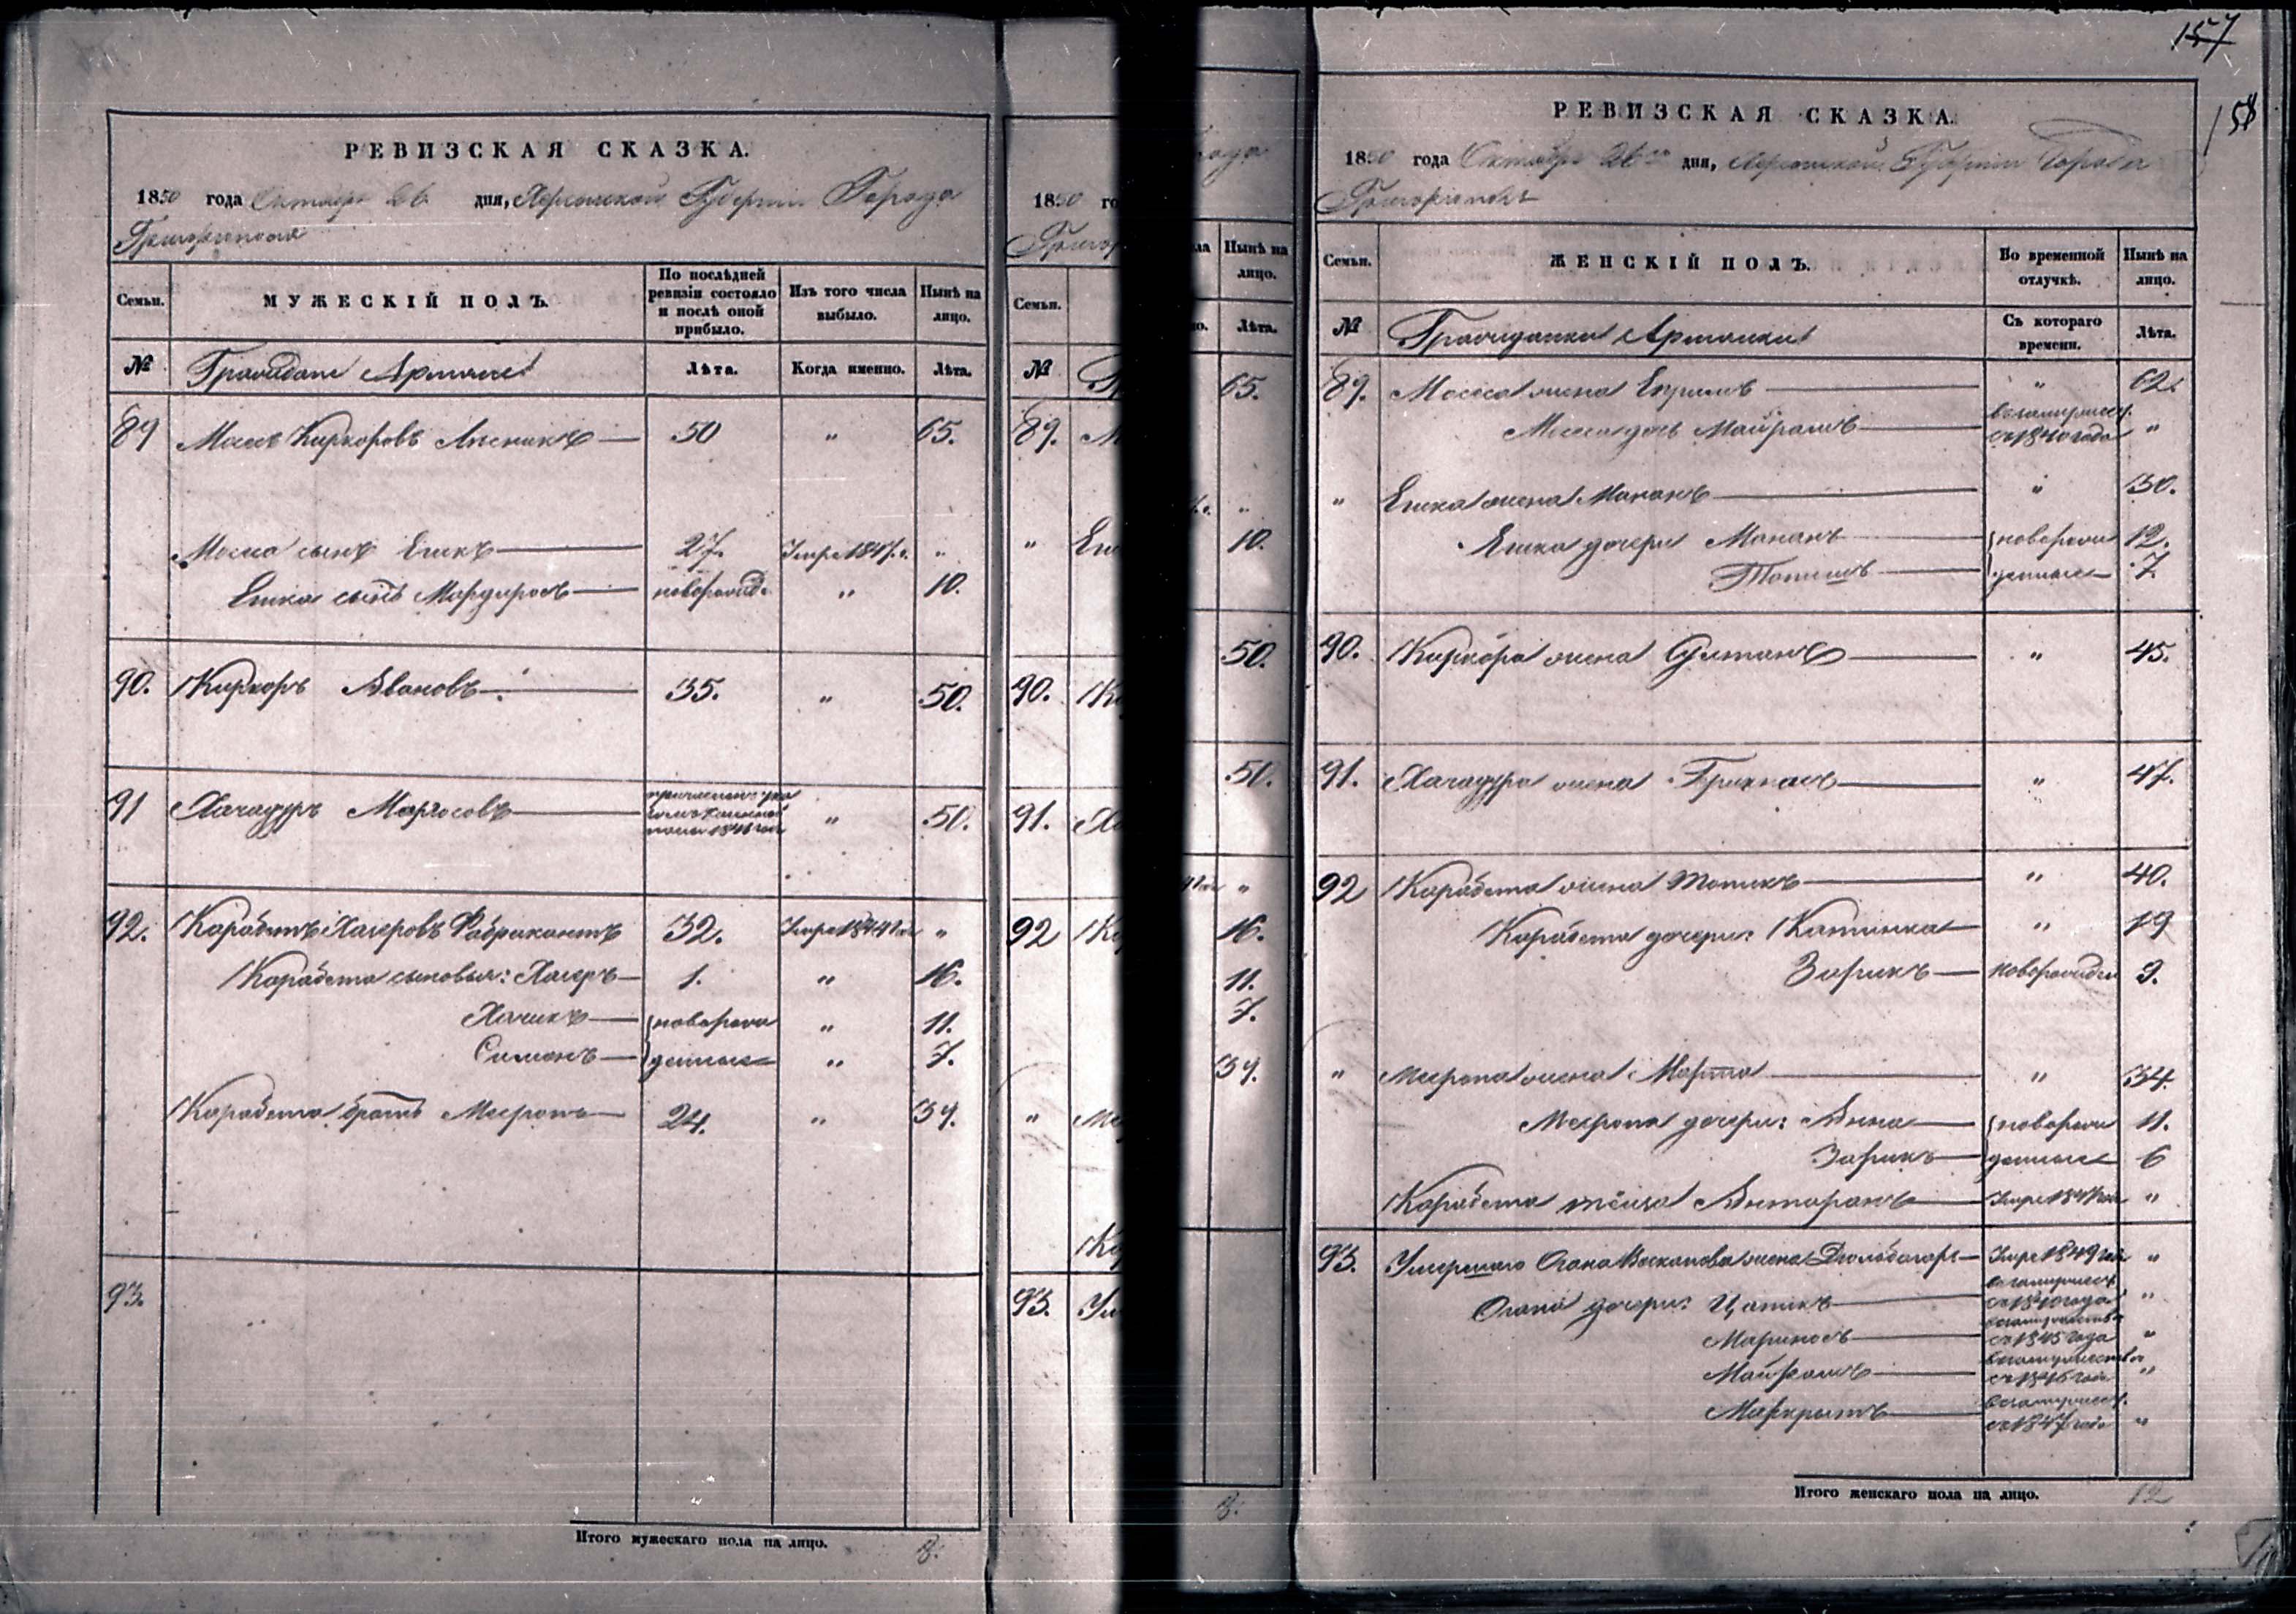 РЕВИЗСКАЯ СКАЗКА.
1850 года Октября 26 дня, Херсонской Губернии Города
Григориополя
Семьи.
МУЖЕСКІЙ ПОЛЪ.
По послѣдней ревизіи состояло и послѣ оной прибыло.
Изъ того числа выбыло.
Нынѣ на лицо.
№
Граждане Армяне
Лѣта.
Когда именно.
Лѣта.
89 Мосесъ Киркоровъ 50 " 65.
Мосеса сынъ Еникъ 27. Умре 1847 г. "
Еника сынъ Мардиросъ новорожд. " 10.
90. Киркоръ Ивановъ 35. " 50.
91 Хачадуръ Маркосовъ " 50.
92. Карабетъ Хачеровъ Фабрикантъ 32. Умре 1844 "
Карабета сыновья: Хачеръ 1. " 16.
Хачикъ новорож " 11.
Симонъ денные " 7.
Карабета братъ Месропъ 24. " 39.
93.
Итого мужескаго пола на лицо. 8.
1850 го
Григор
Семьи.
№
89. М
" Ени
90. Ки
91. Ха
92 Ка
" Ме
Ка
93. Ум
рода
Нынѣ на лицо.
Лѣта.
65.
"
10.
50.
50.
"
16.
11.
7.
39.
8.
157
158
РЕВИЗСКАЯ СКАЗКА.
1850 года Октября 26 го дня, Херсонской Губерніи Города
Григориополя
Семьи.
ЖЕНСКІЙ ПОЛЪ.
Во временной отлучкѣ.
Нынѣ на лицо.
№
Гражданки Армянки
Съ котораго времени.
Лѣта.
89. Мосеса жена " 62.
Мосеса дочь Майрамъ въ замужест. съ 1840 года "
" Еника жена Мананъ " 30.
Еника дочери Мананъ новорож 12.
денные 7.
90. Киркора жена Султанъ " 45.
91. Хачадура жена " 47.
92 Карабета жена " 40.
Карабета дочери: Катинка " 19
Зарикъ новорожден 9.
" Месропа жена Марта " 34.
Месропа дочери: Анна новорож 11.
Зарикъ денные 6
Карабета теща Умре "
93. Умершаго Огана жена Умре 1849 года "
Огана дочери: Цатикъ въ замужест съ 1840 года "
Мариносъ въ замужествѣ съ 1845 года "
Майрамъ въ замужествѣ съ 1846 года "
Маркрытъ въ замужест. съ 1847 года "
Итого женскаго пола на лицо. 12